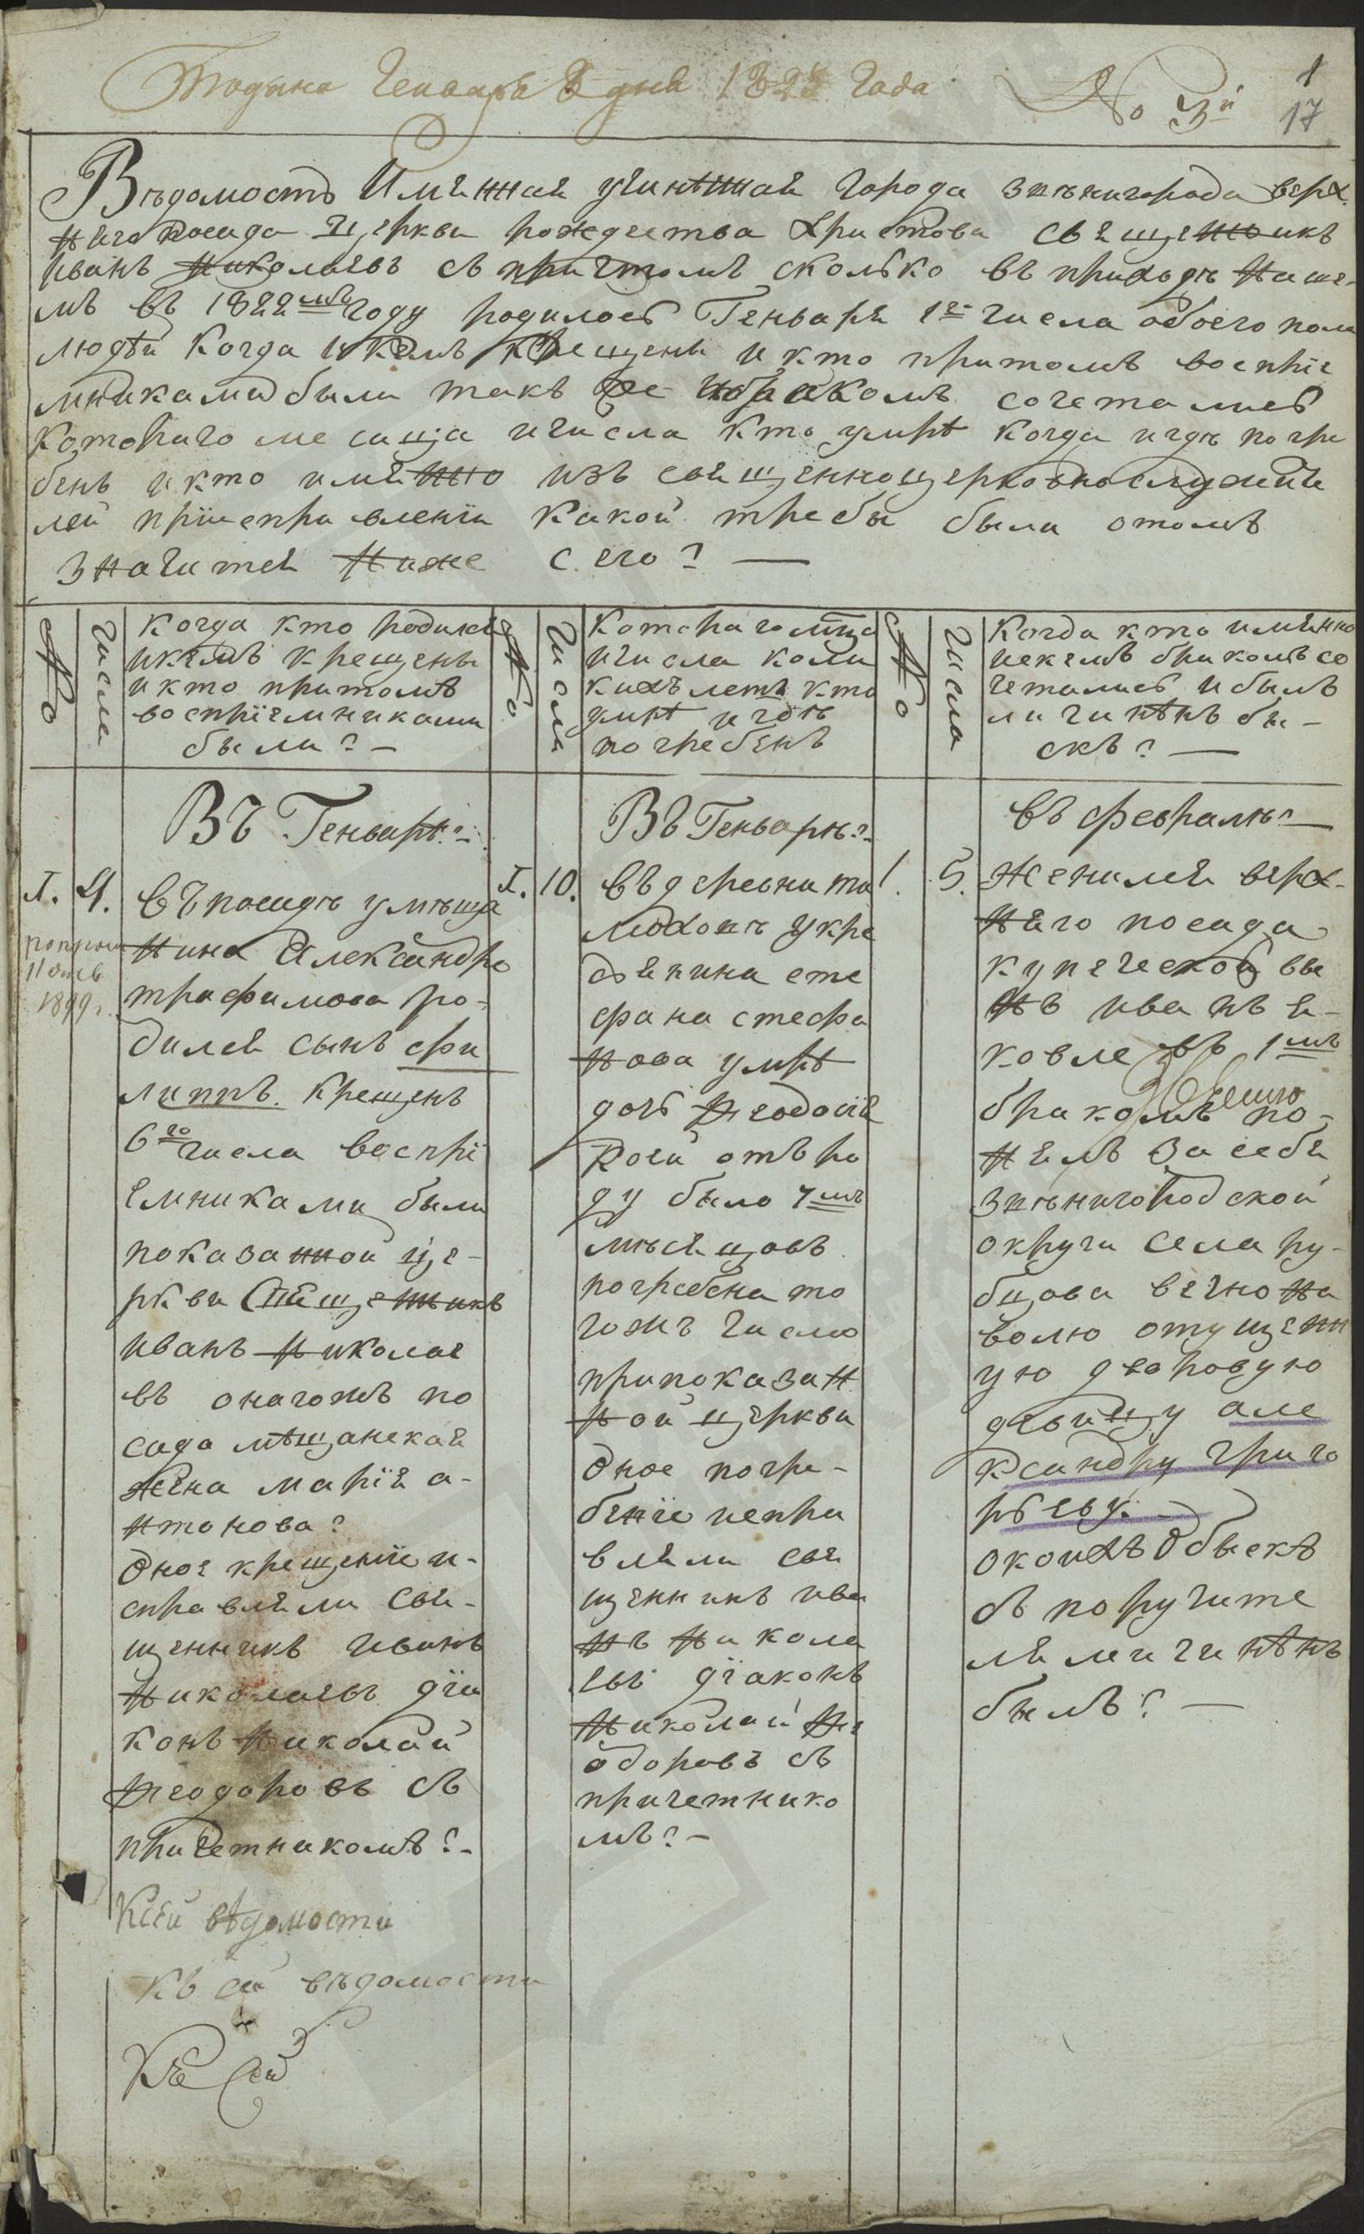 Подана Генваря 8 дня 1823 года
No 3й
1
17
Вѣдомость Имянная учинѣнная города звѣнигорода верх
няго посада церкви рождества Христова священникъ
иванъ николаевъ съ причтомъ сколько въ приходѣ наше
мъ въ 1822мъ году родилось Генваря 1го числа обоего пола
людѣй когда и кѣмъ крещены и кто притомъ воспріе
мниками были такъ же и бракомъ сочетались
котораго месяца и числа кто умрѣ когда и гдѣ погре
бенъ и кто имянно изъ священноцерковнослужите
лей при исправленіи какой требы были о томъ
значится ниже сего? —
No
числа
когда кто родился
и кемъ крещены
и кто притомъ
воспріемниками
были? —
No
числа
Котораго мца
и числа коли
кихъ летъ кто
умрѣ и гдѣ
погребенъ
No
числа
Когда кто имянно
и с кемъ бракомъ со
четались и былъ
ли чинѣнъ обы-
скъ? —
ВЪ Генварѣ? —
I. 4.
въ посадѣ у мѣща
нина Александра
трафимова ро-
дился сынъ фи
липпъ. крещенъ
6го числа воспрі
емниками были
показанной це-
ркви Священникъ
иванъ николае
въ онагожъ по
сада мѣщанская
жена марія а-
нтонова?
оное крещеніе и-
справляли свя-
щенникъ иванъ
николаевъ діа
конъ николай
Ѳеодоровъ съ
причетникомъ? —
1899 г.
Ксей вѣдомости
Къ сей вѣдомости
Къ сей
ВЪ Генварѣ? —
I. 10.
въ деревни
у кре
стьянина сте
фана стефа
нова умрѣ
дочь Ѳеодосія
коей отъ ро
ду было 7мъ
мѣсяцовъ
погребена то
гожъ числа
при показан
ной церкви
оное погре-
беніе испра
вляли свя
щенникъ ива
нъ никола
евъ діаконъ
николай Ѳе
одоровъ съ
причетнико
мъ? —
въ февралѣ? —
1. 5.
женился верх-
няго посада
купеческой сы
нъ иванъ я-
ковлевъ 1мъ
бракомъ по-
нялъ за себя
звѣнигородской
округи села ру-
бцова вечно на
волю отпущенн
ую дворовую
девицу але
ксандру григо
рьеву. —
о коихъ обыскъ
съ поручите
лями чинѣнъ
былъ? —